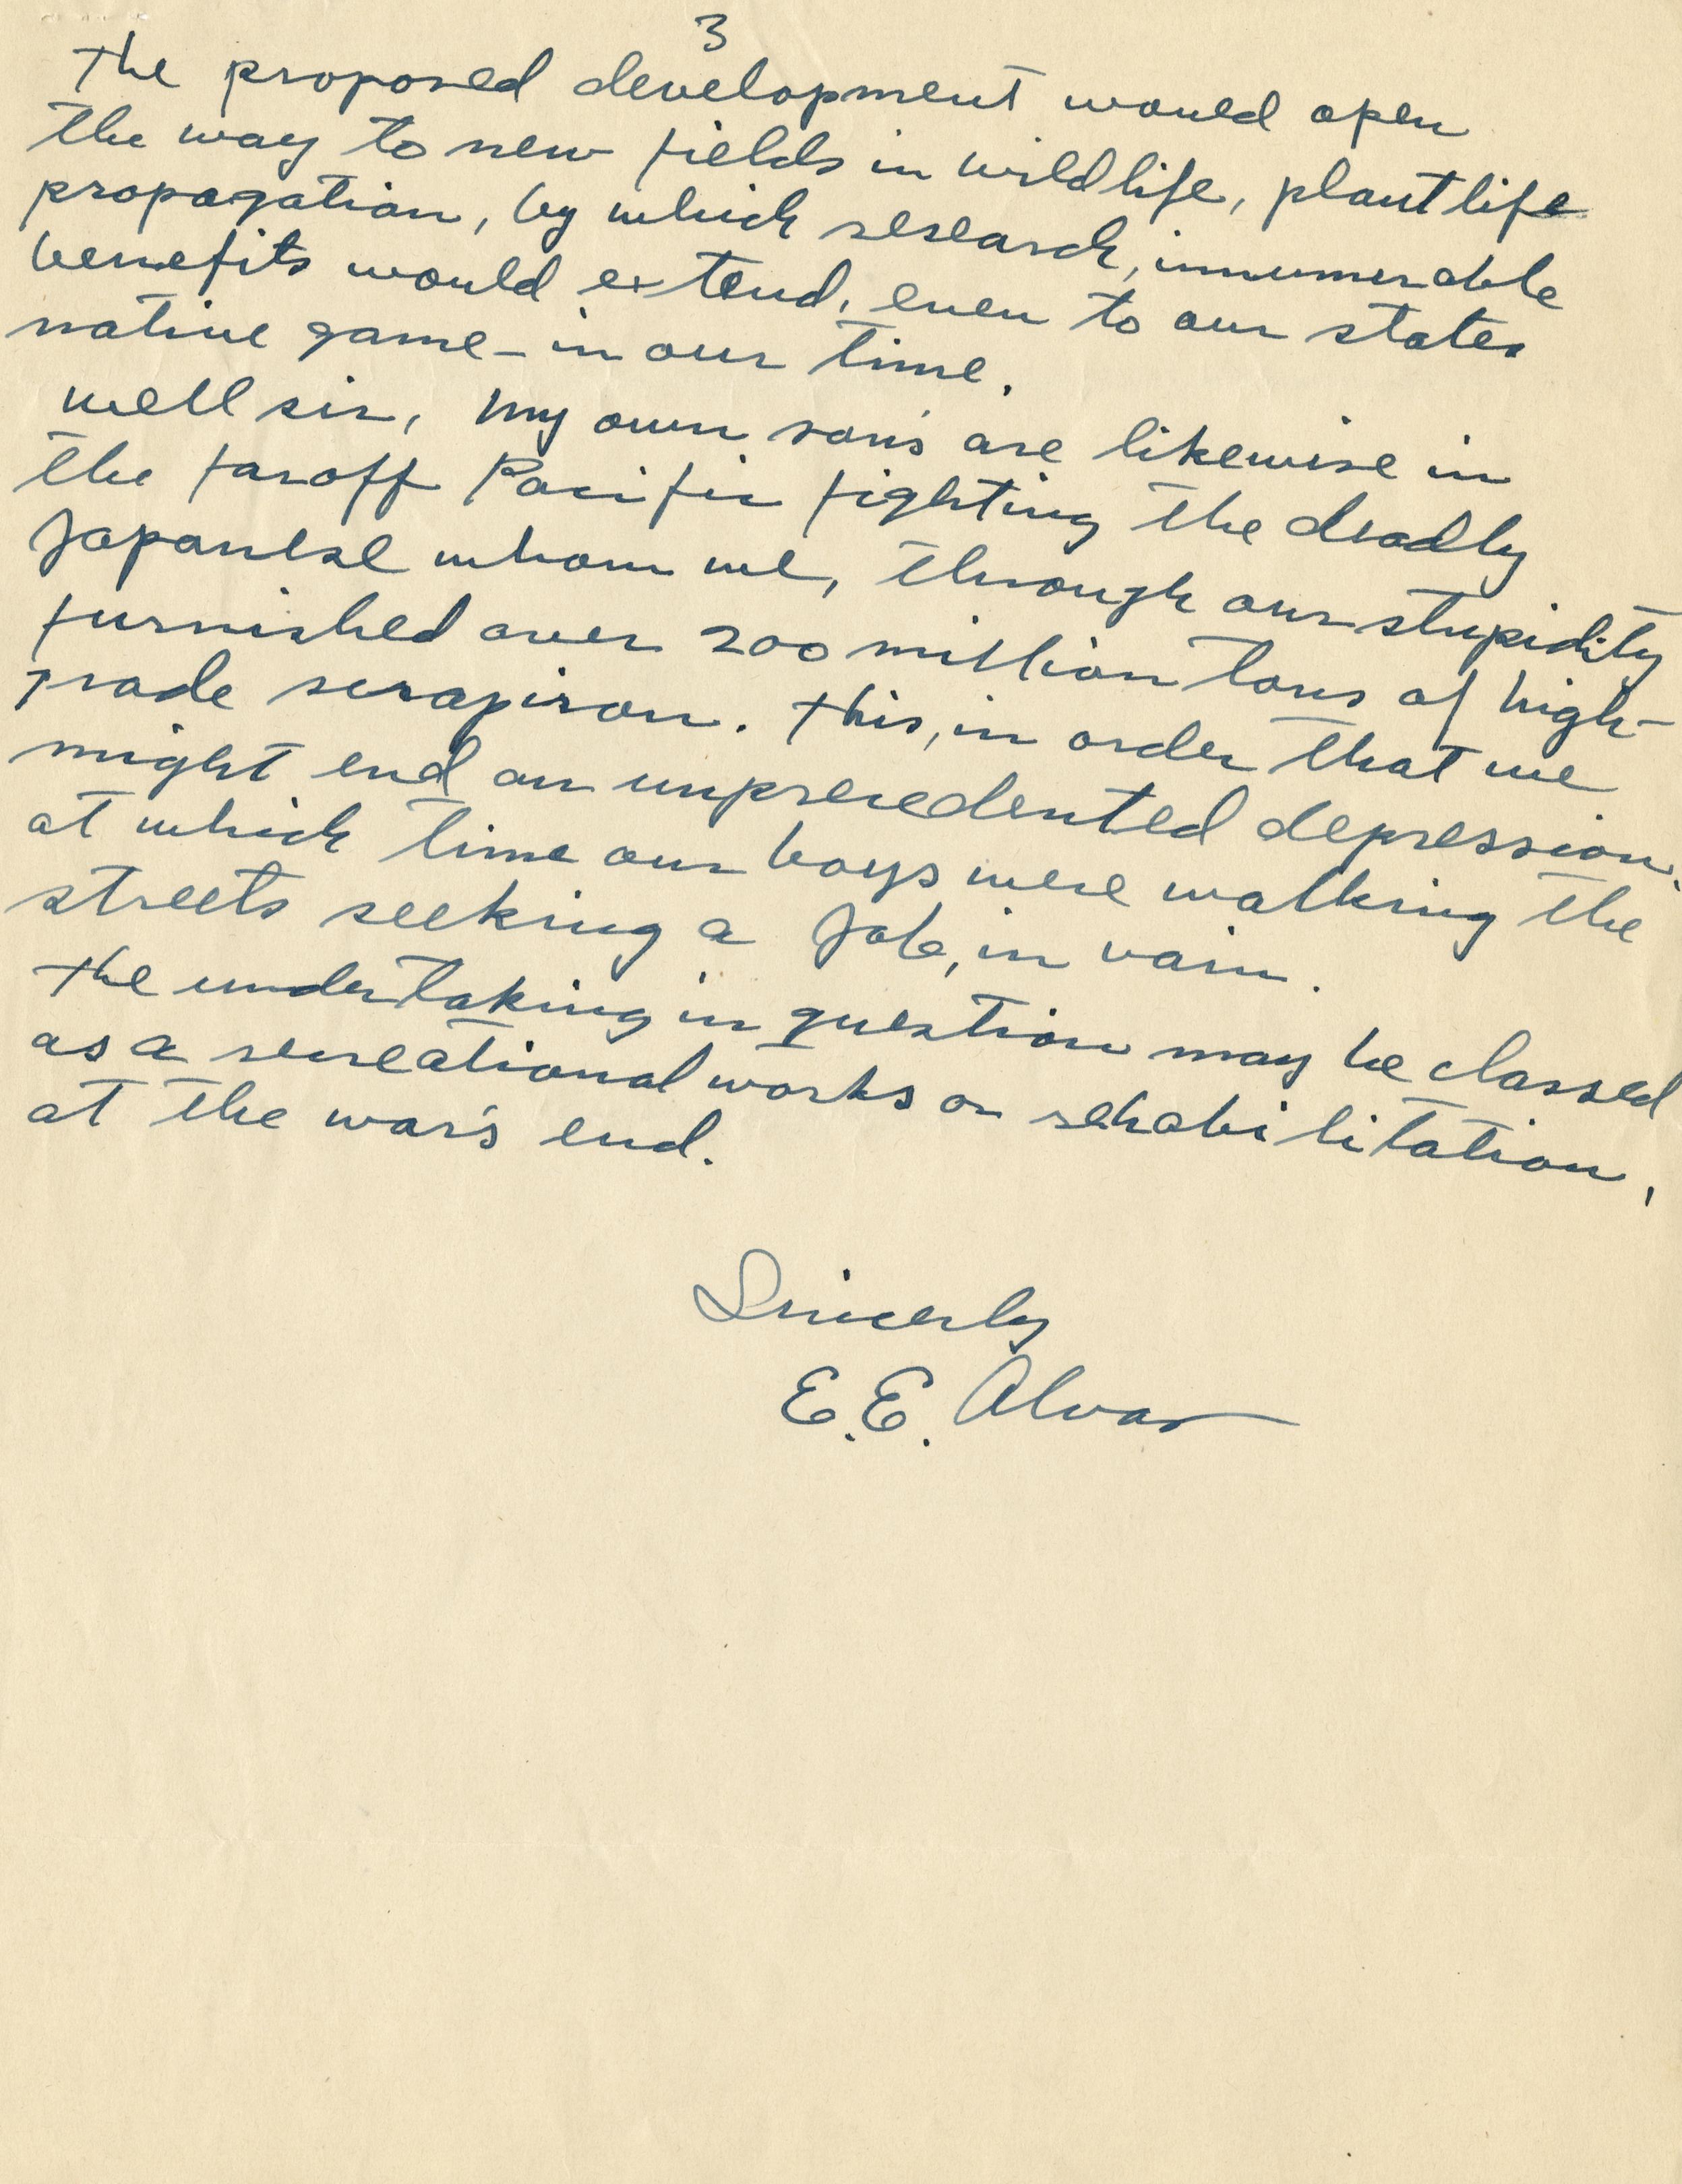 3
The proposed development would open
the way to new fields in wildlife, plantlife
propagation, by which research, innumerable
benefits would extend, even to our states
native game - in our time.
Well sir, my own son's are likewise in
the faroff Pacific fighting the deadly
Japanese whom we, through our stupidity
furnished over 200 million tons of high-
grade scrapiron. This, in order that we
might end an unprecedented depression.
at which time our boys were walking the
streets seeking a job, in vain.
The undertaking in question may be classed
as a recreational works or rehabilitation,
at the war's end.
Sincerly
E.E. Alvar